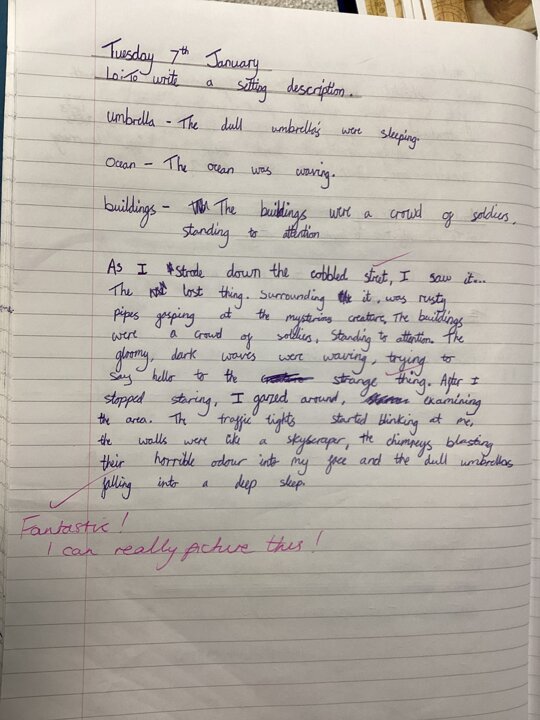 Tuesday 7th January
Lo: To write a setting description.
umbrella - The dull umbrella's were sleeping.
Ocean - The ocean was waving.
buildings - The buildings were a crowd of soldiers,
standing to attention
As I strode down the cobbled street, I saw it...
The lost thing. Surrounding it, was rusty
pipes gasping at the mysterious creature, The buildings
were a crowd of soldiers, standing to attention. The
gloomy, dark waves were waving, trying to
say hello to the strange thing. After I
stopped staring, I gazed around, examining
the area. The traffic lights started blinking at me,
the walls were like a skyscraper, the chimneys blasting
their horrible odour into my face and the dull umbrellas
falling into a deep sleep.
Fantastic!
I can really picture this!